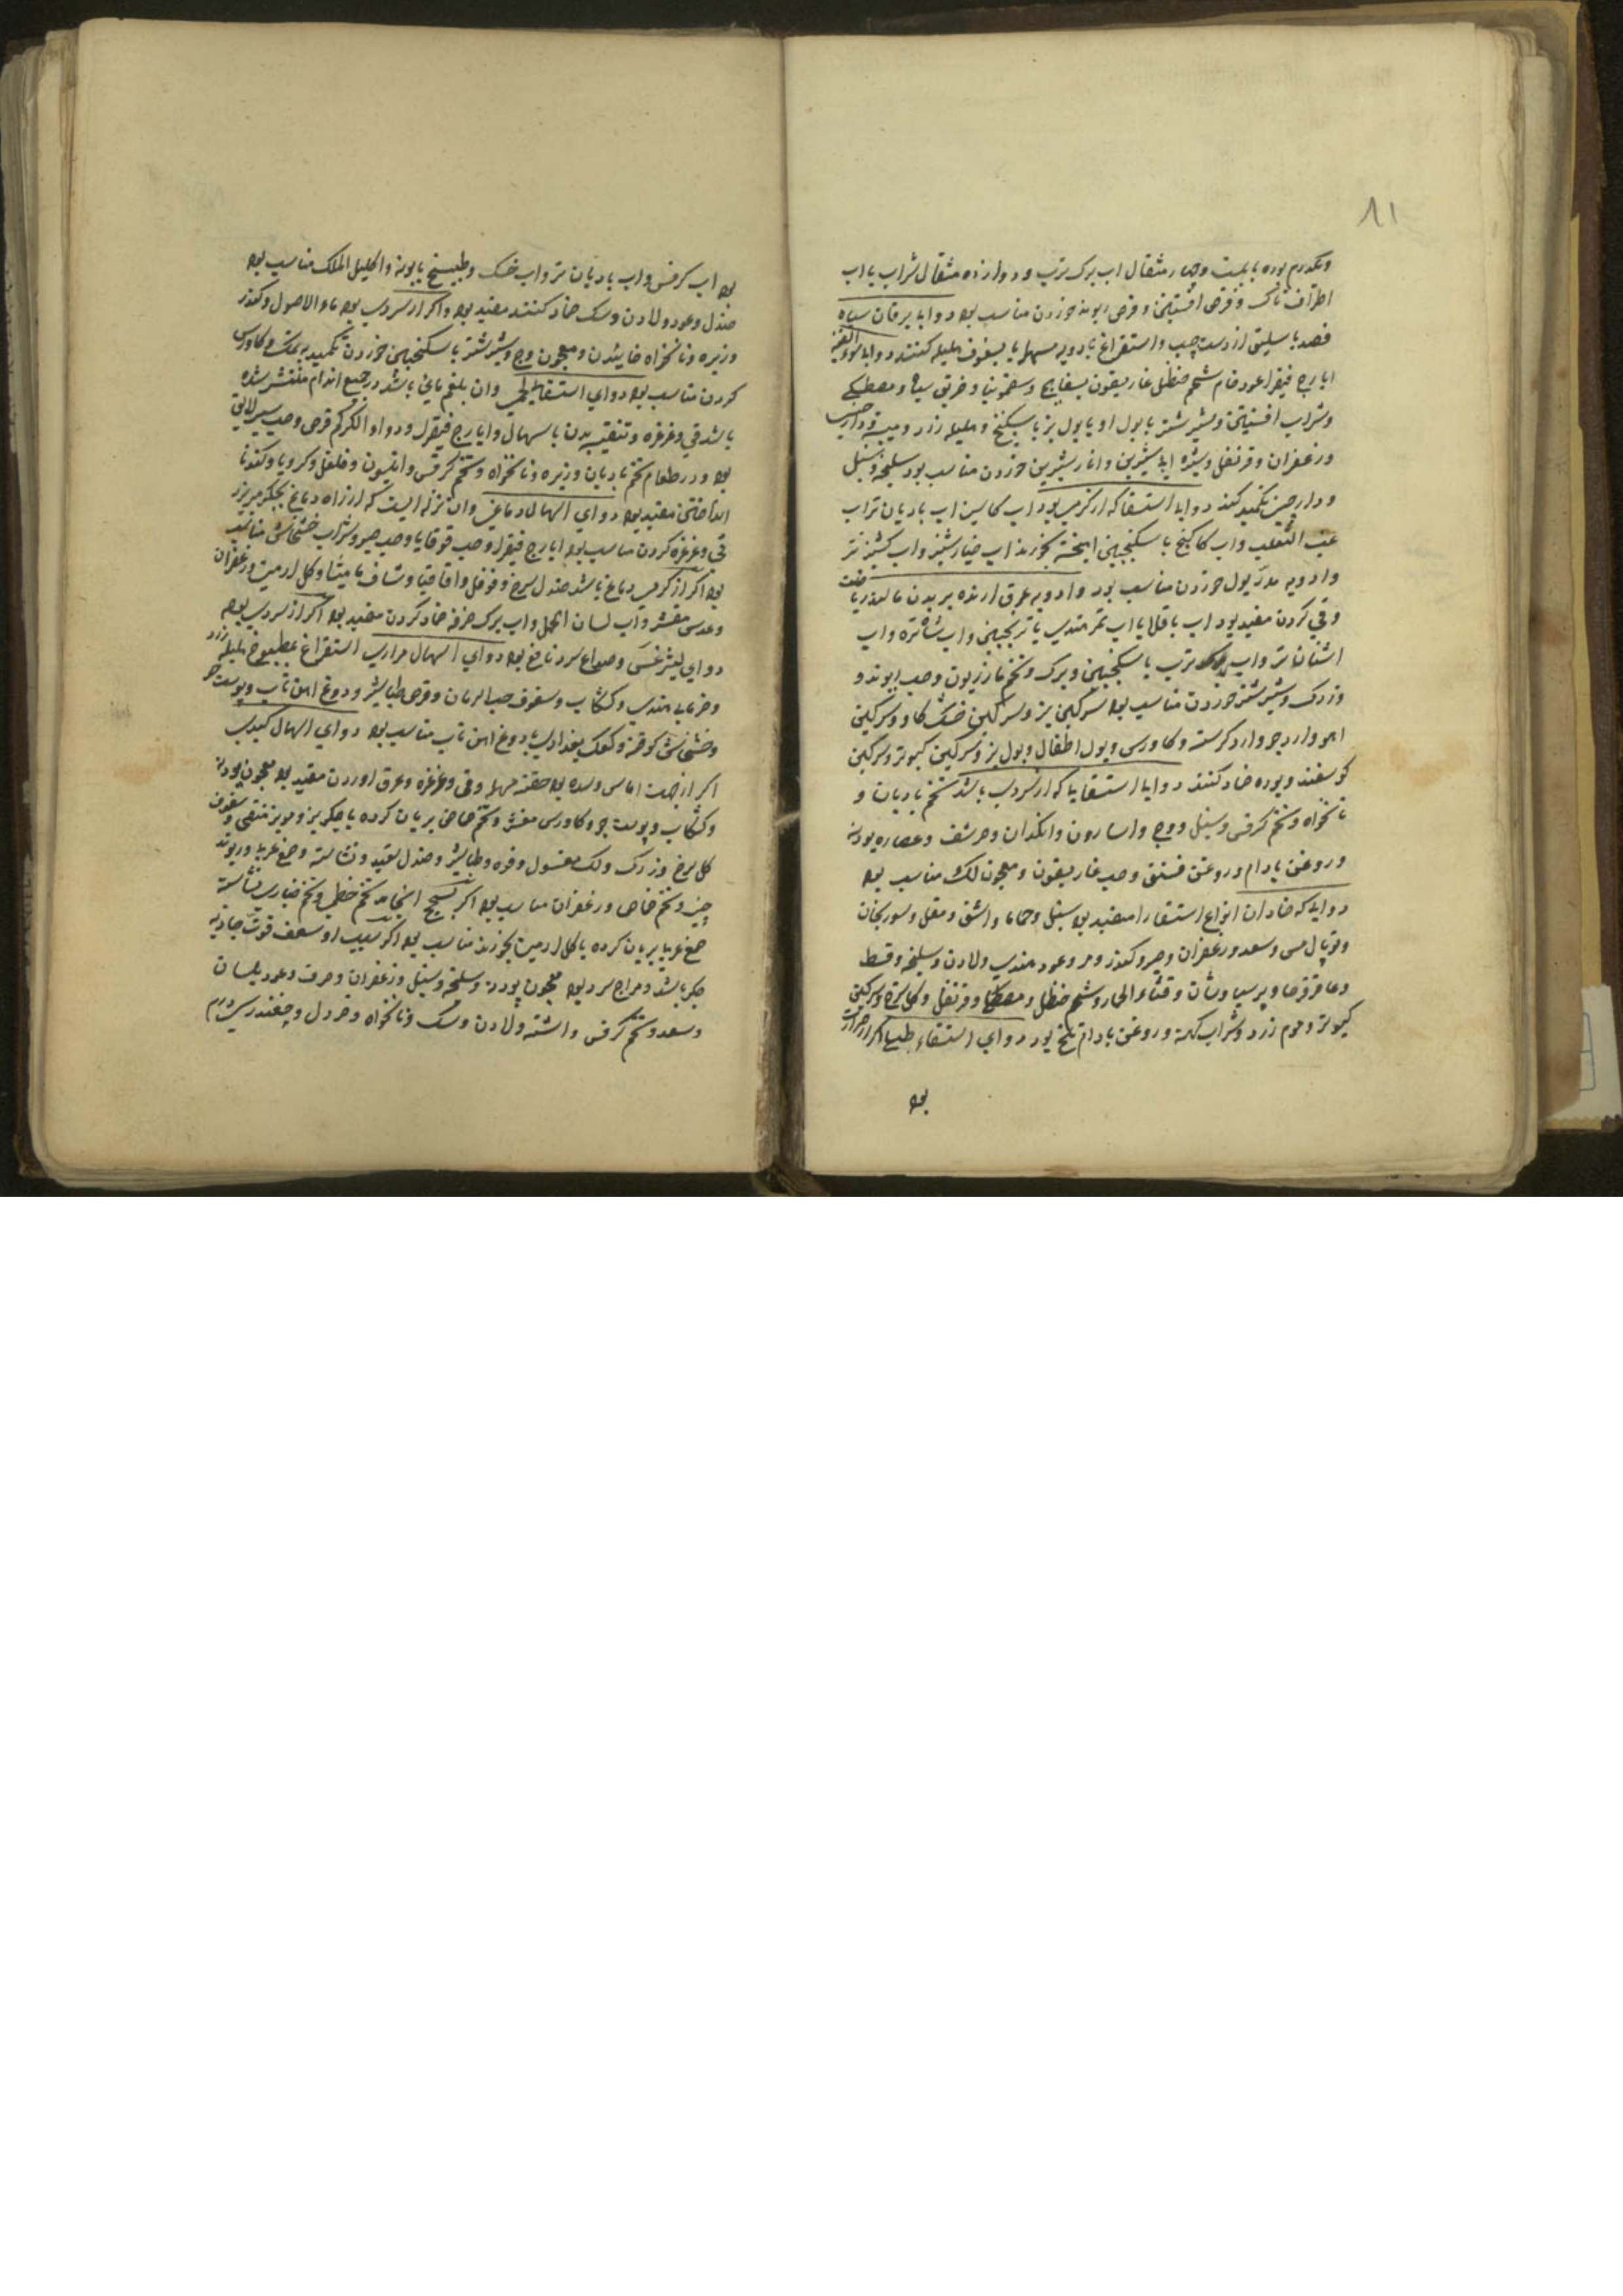 ۸۱
ویکدرم بوره با بیست وچهار مثقال اب برک ترب و دوازده مثقال شراب یا اب
اطراف تاک و قرص افسنتین و قرص ریوند خوردن مناسب بود دوای یرقان سیاه
فصد باسلیق از دست چپ واستفراغ بادویه مسهله یا بسفوف هلیله کنند دوای سوء القنیه
ایارج فیقرا عود خام شحم حنظل غاریقون بسفایج وسقمونیا و خربق سیاه و مصطکی
وشراب افسنتین وشیر شتر با بول او یا بول بز یا سکبینج و هلیله زرد ومیبه ودارچینی
وزعفران وقرنفل وشیره ابی شیرین وانار شیرین خوردن مناسب بود سلیخه وسنبل
ودارچینی تکمید کنند دوای استسقا که از کرمی بود اب کاسنی اب بادیان تر اب
عنب الثعلب واب کاکنج با سکنجبین امیخته بخورند اب خیار شنبر واب کشنیز تر
وادویه مدر بول خوردن مناسب بود وادویه عرق ارنده بر بدن مالند ریاضت
وقی کردن مفید بود اب باقلا یا اب تمر هندی یا ترنجبین واب شاتره واب
اشنان تر واب برک ترب با سکنجبین وبرک وتخم مازریون وحب ریوند و
وزرک وشیر شتر خوردن مناسب بود سرکین بز وسرکین خشک کاو وسرکین
اهو وارد جو وارد کرسنه وکاورس وبول اطفال وبول بز وسرکین کبوتر وسرکین
کوسفند وبوره ضماد کنند دوای استسقا یا که از سردی باشد تخم بادیان و
نانخواه وتخم کرفس وسنبل ووج واسارون وانکدان وحرشف وعصاره پودنه
وروغن بادام وروغن فستق وحب غاریقون ومعجون لک مناسب بود
دوای که ضمادان انواع استسقا را مفید بود سنبل وحماما واشق ومقل وسورنجان
وتوبال مس وسعد وزعفران وصبر وکندر ومر وعود هندی ولادن وسلیخه وقسط
وعاقرقرحا وپرسیاوشان وقثاء الحمار وشحم حنظل ومصطکی وقرنفل وکل سرخ وسرکین
کبوتر وموم زرد وشراب کهنه وروغن بادام تلخ بود دوای استسقاء طبلی اکر از حرارت
بود
بود اب کرفس واب بادیان تر واب خسک وطبیخ بابونه واکلیل الملک مناسب بود
صندل وعود ولادن وسک ضماد کنند مفید بود واکر از سردی بود ماء الاصول وکندر
وزیره ونانخواه خاییدن ومعجون وج وشیر شتر با سکنجبین خوردن تکمید بنمک وکاورس
کردن مناسب بود دوای استسقا لحمی وان بلغم مایی باشد در جمیع اندام منتشر شده
باشد قی وغرغره وتنقیه بدن باسهال وایارج فیقرا ودواء الکرکم قرص وحب
بود ودر طعام تخم بادیان وزیره ونانخواه وتخم کرفس وانیسون وفلفل وکرویا وکندنا
انداختن مفید بود دوای اسهال دماغی وان نزله ایست که از راه دماغ بجکر میریزد
قی وغرغره کردن مناسب بود ایارج فیقرا وحب قوقایا وحب صبر وشراب خشخاش مناسب
بود اکر از کرمی دماغ باشد صندل سرخ وفوفل واقاقیا وشیاف مامیثا وکل ارمنی وزعفران
وعدس مقشر واب لسان الحمل واب برک خرفه ضماد کردن مفید بود اکر از سردی بود
دوای لیثرغس وصداع سرد نافع بود دوای اسهال مراری استفراغ بمطبوخ هلیله زرد
وخرمای هندی وکشکاب وسفوف حب الرمان وقرص طباشیر ودوغ اهن تاب وپوست
وخشخاش کوفته وکعک بغدادی با دوغ اهن تاب مناسب بود دوای اسهال کبدی
اکر از جهت اماس وسده بود حقنه مسهله وقی وغرغره وعرق اوردن مفید بود معجون پودنه
وکشکاب وپوست جو وکاورس مقشر وتخم حماض بریان کرده با جکر بز ومویز منقی وسفوف
کل سرخ وزرک ولک مغسول وفوه وطباشیر وصندل سفید ونشاسته وصمغ عربی وریوند
چینی وتخم حماض وزعفران مناسب بود اکر بسحج انجامد تخم خطمی وتخم خیارین نشاسته
صمغ عربی بریان کرده با کل ارمنی بخورند مناسب بود اکر بسبب او ضعف قوت جاذبه
جکر باشد ومزاج سرد بود معجون پودنه وسلیخه وسنبل وزعفران وحرف وعود بلسان
وسعد وتخم کرفس واشنه ولادن وسک ونانخواه وخردل وچغندر